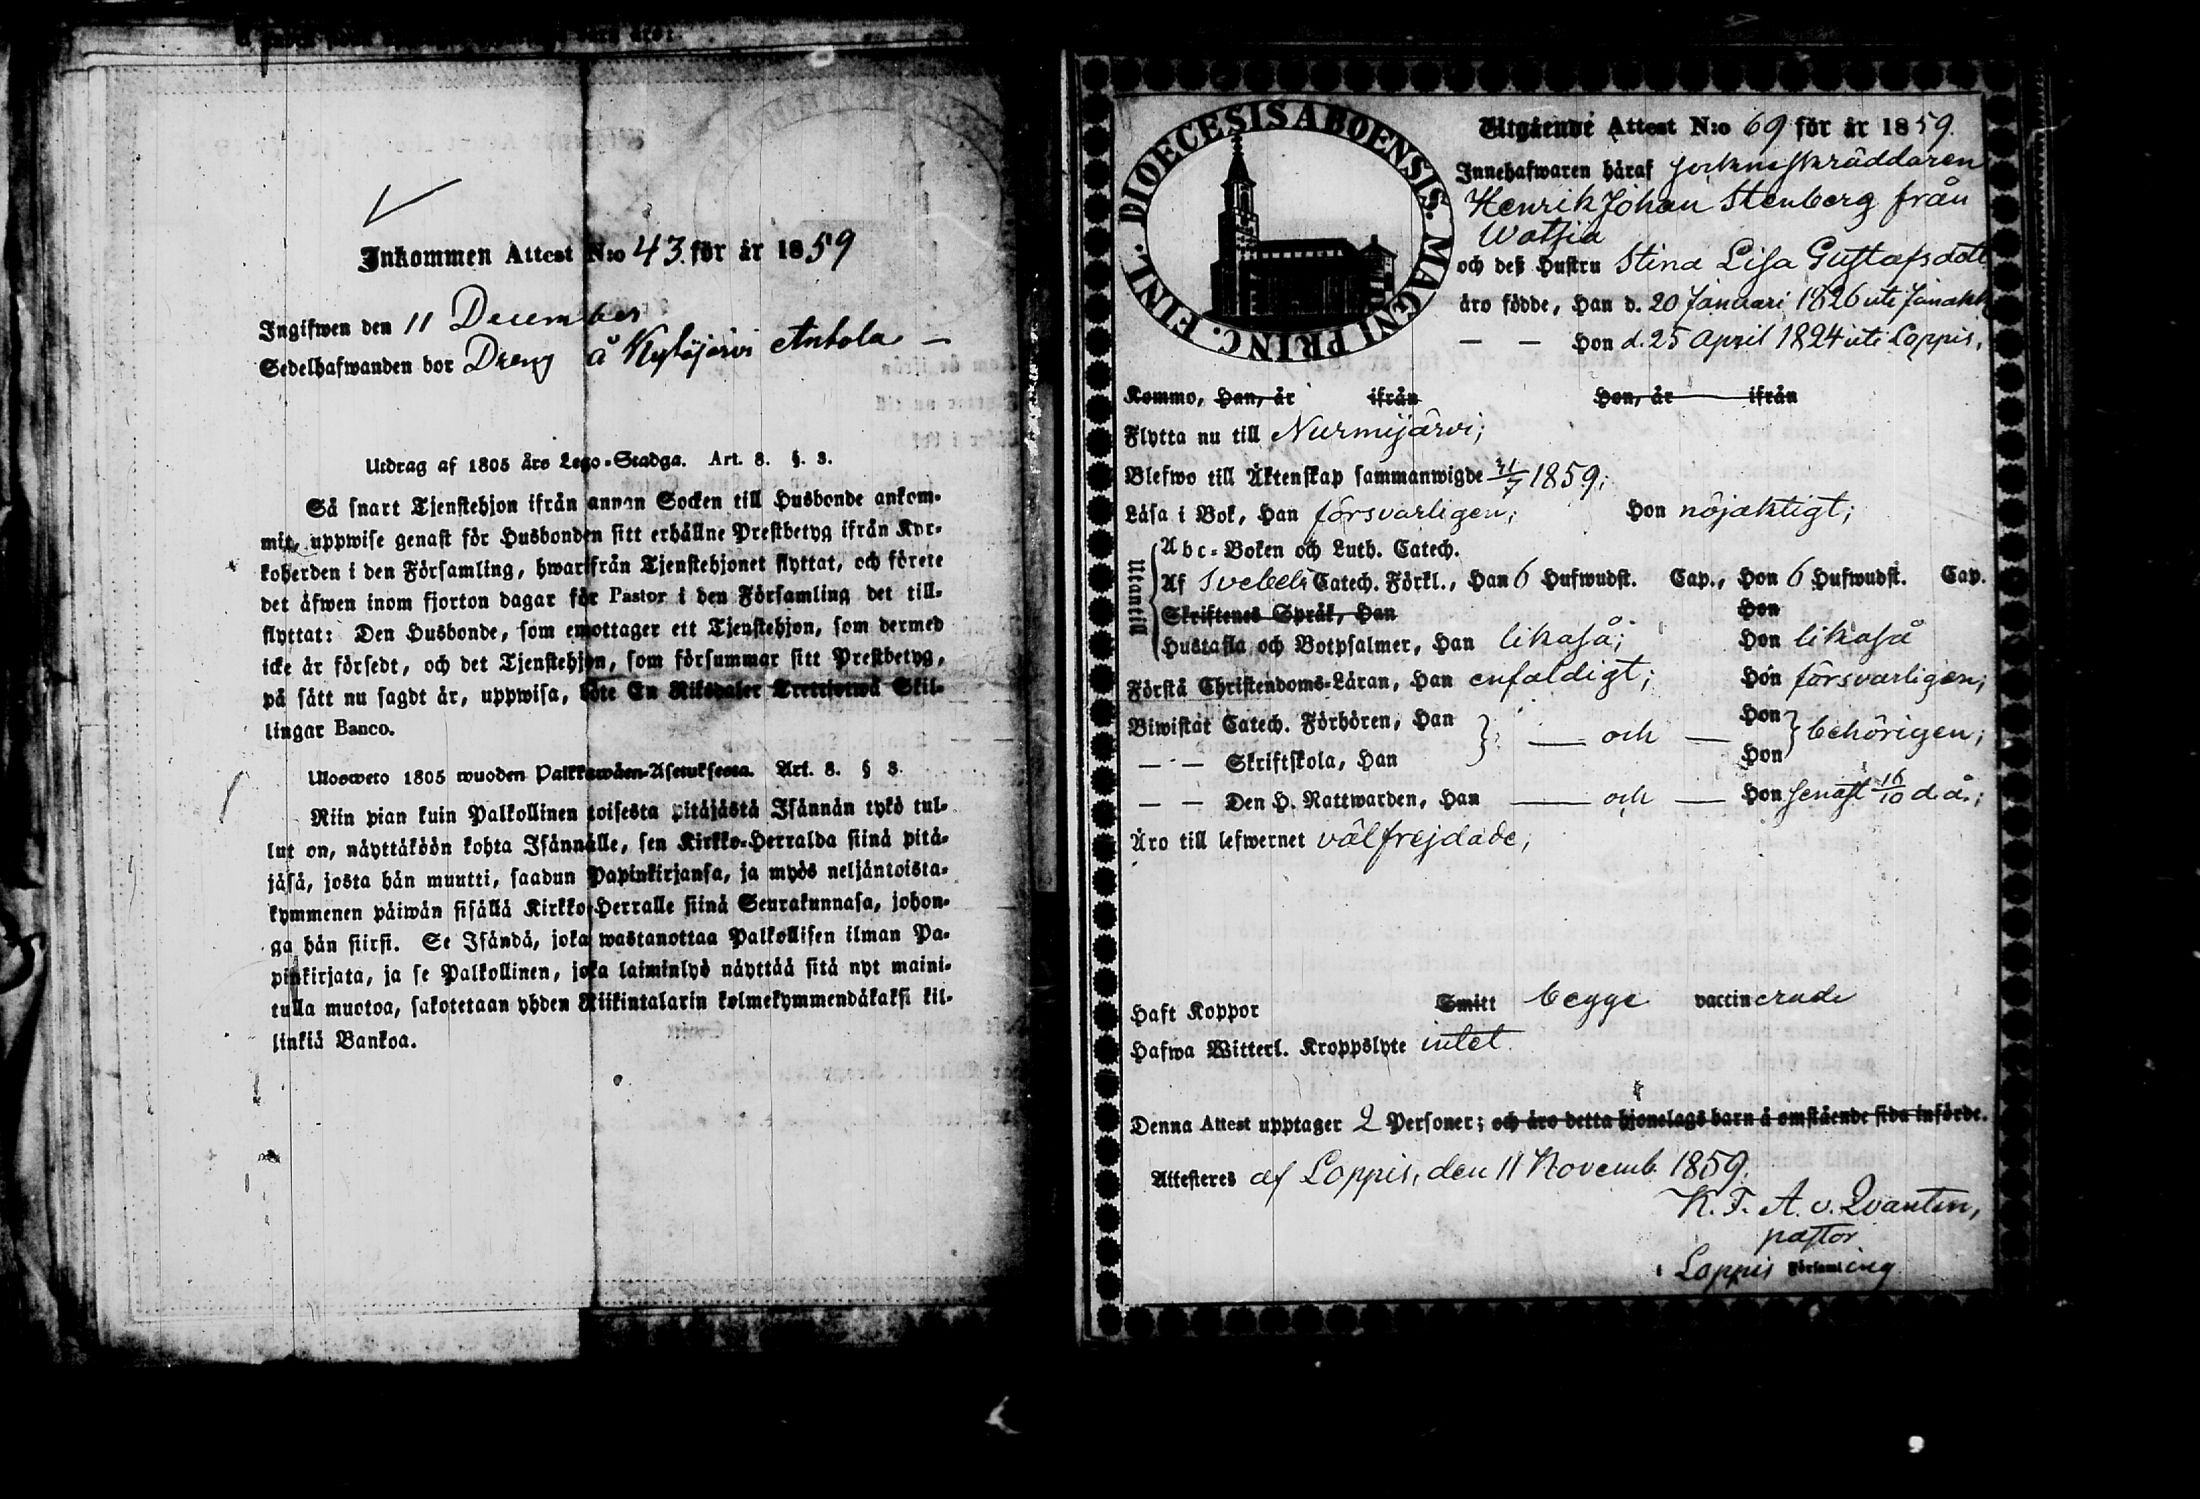 Inkommen Attest N:o 43 för år 1859
Ingifwen den 11 December
Sedelhafwanden bor Dreng å Kytäjärvi Antola —
Utdrag af 1805 års Lego-Stadga. Art. 8. §. 3.
Så snart Tjenstehjon ifrån annan Socken till Husbonde ankom-
mit, uppwise genast för Husbonden sitt erhållne Prestbetyg ifrån Kyr-
koherden i den Församling, hwarifrån Tjenstehjonet flyttat, och förete
det äfwen inom fjorton dagar för Pastor i den Församling det till-
flyttat: Den Husbonde, som emottager ett Tjenstehjon, som dermed
icke är försedt, och det Tjenstehjon, som försummar sitt Prestbetyg,
på sätt nu sagdt är, uppwisa, böte En Riksdaler Trettiotwå Skil-
lingar Banco.
Ulosweto 1805 wuoden Palkkawäen-Asetuksesta. Art. 8. § 3.
Niin pian kuin Palkollinen toisesta pitäjästä Isännän tykö tul-
lut on, näyttäköön kohta Isännälle, sen Kirkko-Herralda siinä pitä-
jäsä, josta hän muutti, saadun Papinkirjansa, ja myös neljäntoista-
kymmenen päiwän sisällä Kirkko-Herralle siinä Seurakunnasa, johon-
ga hän siirsi. Se Isändä, joka wastanottaa Palkollisen ilman Pa-
pinkirjata, ja se Palkollinen, joka laiminlyö näyttää sitä nyt maini-
tulla muotoa, sakotetaan yhden Riikintalarin kolmekymmendäkaksi kil-
linkiä Bankoa.
DIOECESIS ABOENSIS. MAGNI PRINC. FINL.
Utgående Attest N:o 69 för år 1859.
Innehafwaren häraf sockneskräddaren
Henrik Johan Stenberg från
Watsia
och deß Hustru Stina Lisa Gustafsdott.
äro födde, Han d. 20 Januari 1826 uti Janakk
— — Hon d. 25 April 1824 uti Loppis,
Kommo, Han, år ifrån Hon, år ifrån
Flytta nu till Nurmijärvi;
Blefwo till Äktenskap sammanwigde 31/7 1859;
Läsa i Bok, Han försvarligen; Hon nöjaktigt;
Utantill
Abc-Boken och Luth. Catech.
Af Svebeli Catech. Förkl., Han 6 Hufwudst. Cap., Hon 6 Hufwudst. Cap.
Skriftenes Språk, Han Hon
Hustafla och Botpsalmer, Han likaså; Hon likaså
Förstå Christendoms-Läran, Han enfaldigt; Hon försvarligen;
Biwistat Catech. Förhören, Han — och — Hon behörigen;
— — Skriftskola, Han Hon
— — Den H. Nattwarden, Han — och — Hon senast 16/10 d.å.;
Äro till lefwernet välfrejdade;
Haft Koppor Smitt begge vaccinerade
Hafwa Witterl. Kroppslyte intet.
Denna Attest upptager 2 Personer; och äro detta hjonelags barn å omstående sida införde.
Attesteres af Loppis, den 11 Novemb. 1859.
K. F. A. v. Qvanten,
pastor
i Loppis Församling